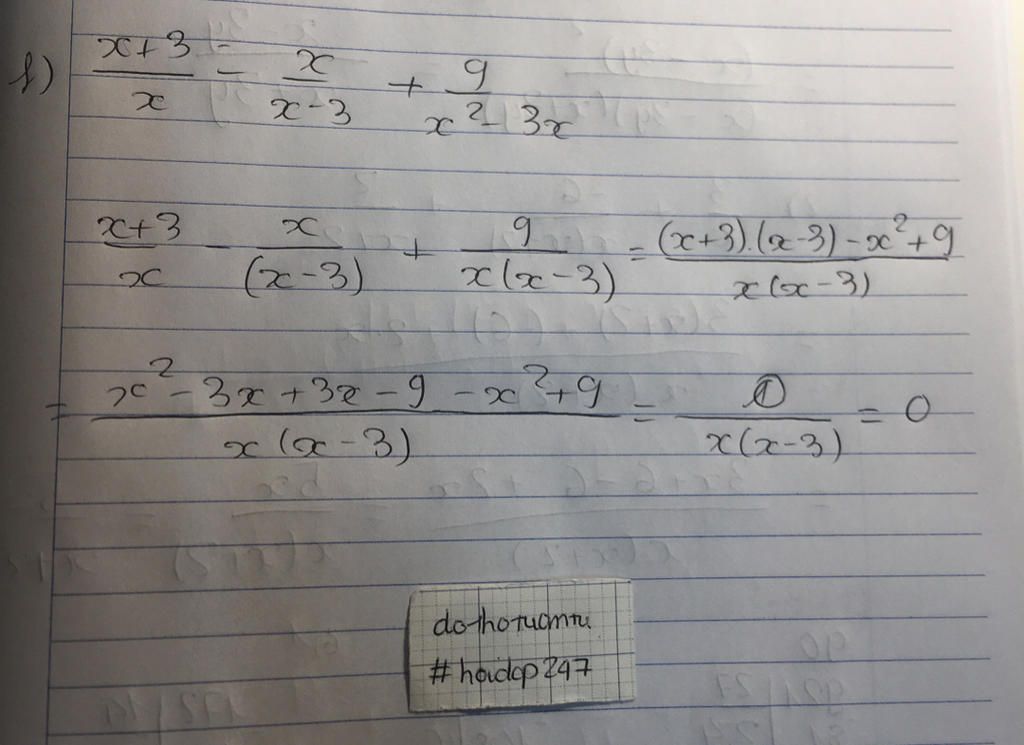 f) \frac{x+3}{x} - \frac{x}{x-3} + \frac{9}{x^2-3x}
\frac{x+3}{x} - \frac{x}{(x-3)} + \frac{9}{x(x-3)} = \frac{(x+3).(x-3)-x^2+9}{x(x-3)}
= \frac{x^2-3x+3x-9-x^2+9}{x(x-3)} = \frac{0}{x(x-3)} = 0
#hoidap247